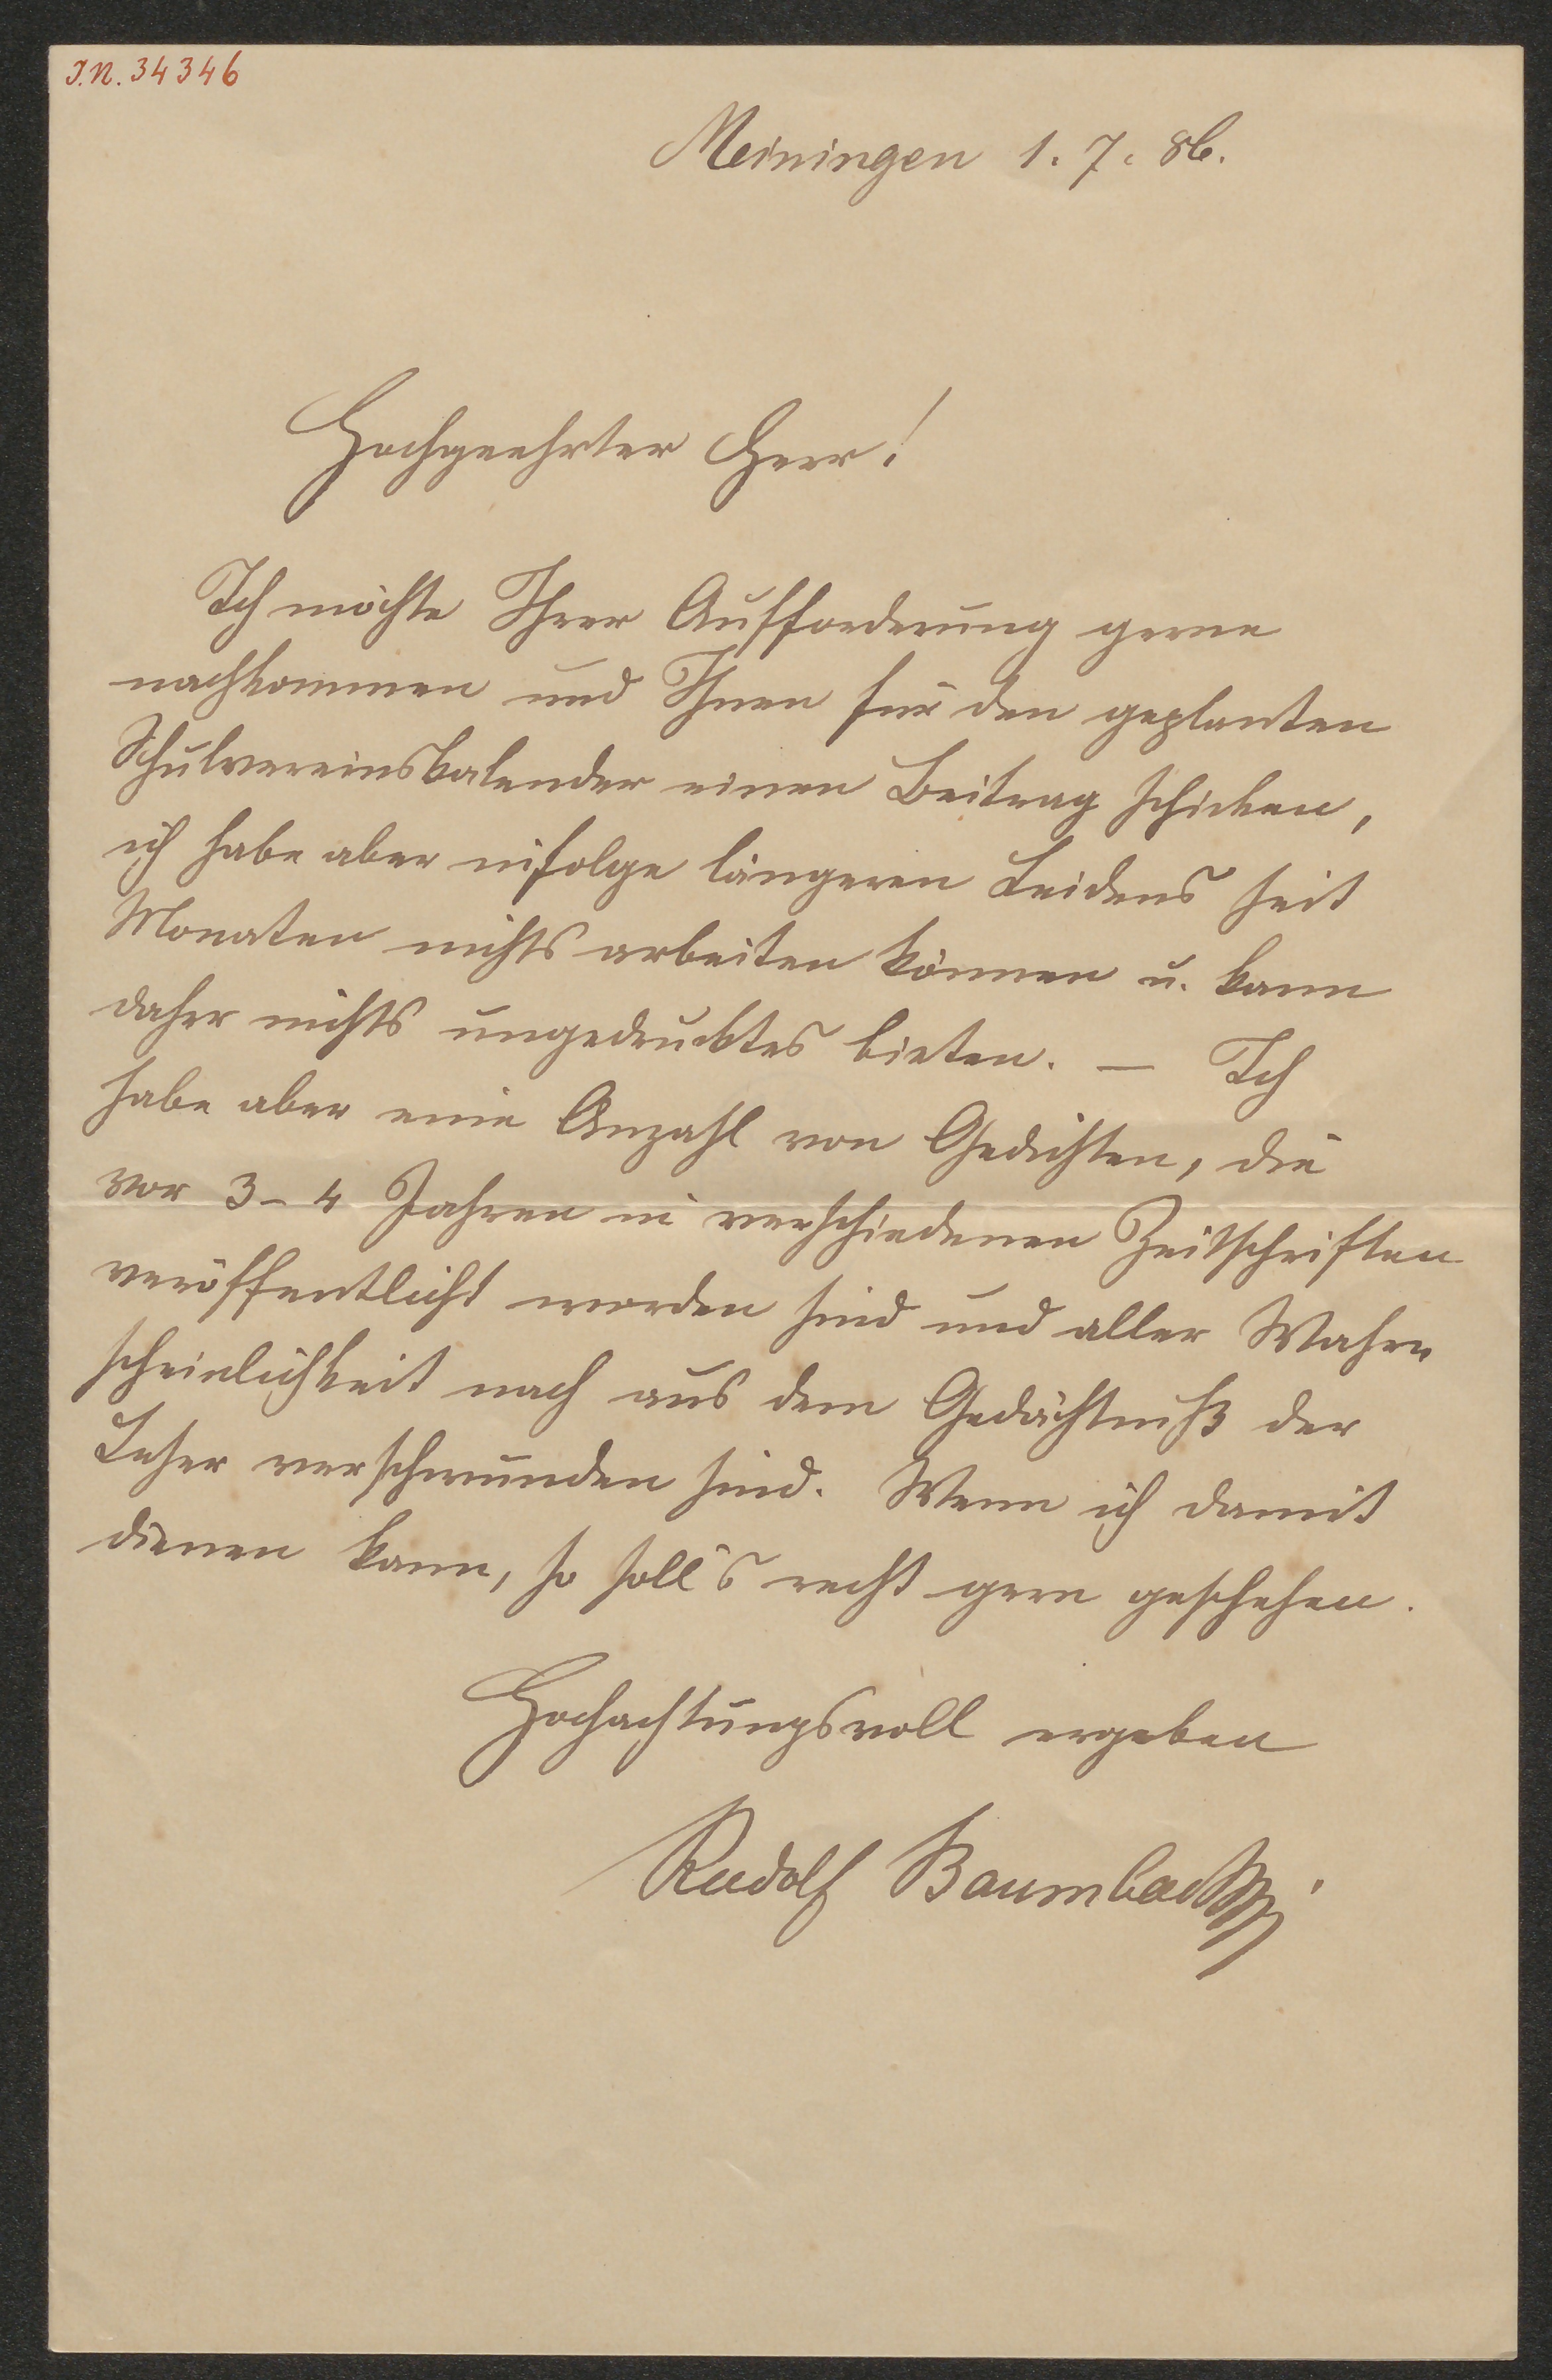 I.N. 34346
Meiningen 1. 7. 86.
Hochgeehrter Herr!
Ich möchte Ihrer Aufforderung gerne
nachkommen und Ihnen für den geplanten
Schulvereinskalender einen Beitrag schicken,
ich habe aber infolge längeren Leidens seit
Monaten nichts arbeiten können u. kann
daher nichts ungedrucktes bieten. — Ich
habe aber eine Anzahl von Gedichten, die
vor 3-4 Jahren in verschiedenen Zeitschriften
veröffentlicht worden sind und aller Wahr-
scheinlichkeit nach aus dem Gedächtniß der
Leser verschwunden sind. Wenn ich damit
dienen kann, so soll's recht gern geschehen.
Hochachtungsvoll ergeben
Rudolf Baumbach